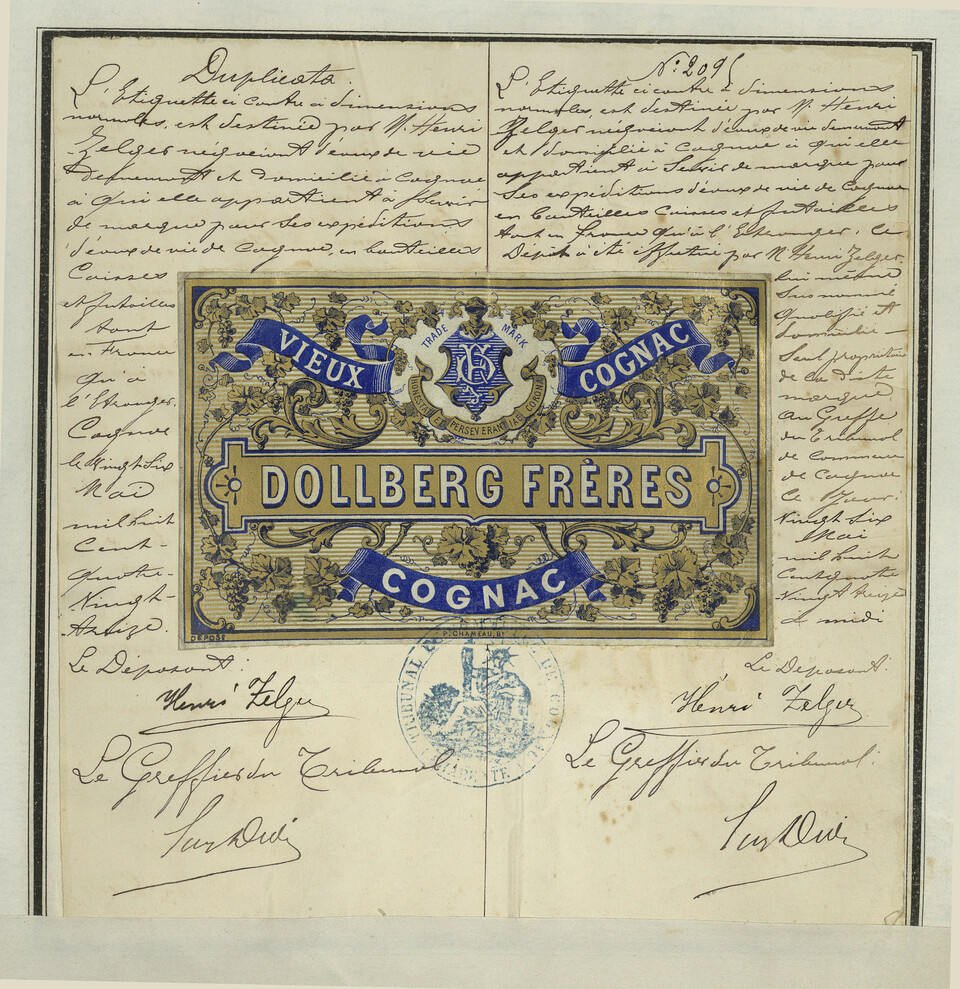 Duplicata
L'Etiquette ci contre à dimensions
normales, est destinée par M. Henri
Zelger négociant d'eaux de vie
demeurant et domicilié à Cognac
à qui elle appartient à servir
de marque pour ses expéditions
d'eaux de vie de Cognac, en bouteilles
Caisses
et futailles
tant
en France
qu'à
l'Etranger.
Cognac
le vingt Six
Mai
mil huit
Cent-
quatre-
Vingt-
treize.
Le Déposant:
Henri Zelger
Le Greffier du Tribunal
N° 2095
L'Etiquette ci contre à dimensions
normales, est destinée par M. Henri
Zelger négociant d'eaux de vie demeurant
et domicilié à Cognac à qui elle
appartient à servir de marque pour
ses expéditions d'eaux de vie de Cognac
en bouteilles Caisses et futailles
tant en France qu'à l'Etranger. Ce
Dépôt a été effectué par M. Henri Zelger,
lui même
susnommé
qualifié et
domicilié
seul propriétaire
de la dite
marque
au Greffe
du Tribunal
de commerce
de Cognac
ce jour:
Vingt six
Mai
mil huit
cent quatre
Vingt treize
à midi
Le Déposant:
Henri Zelger
Le Greffier du Tribunal.
VIEUX
TRADE MARK
COGNAC
PERSEVERANTIA
DOLLBERG FRÈRES
COGNAC
DÉPOSÉ
P. CHAMEAU, Bx
TRIBUNAL